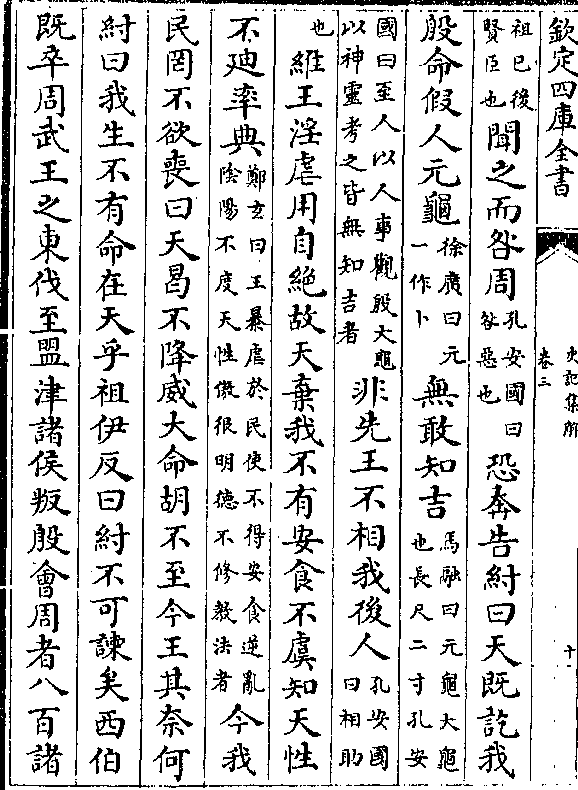 欽定四庫全書
史記集解
卷三
十一
祖已後賢臣也聞之而咎周孔安國曰咎惡也恐奔告紂曰天既訖我
殷命假人元龜徐廣曰元一作卜無敢知吉馬融曰元龜大龜也長尺二寸孔安
國曰至人以人事觀殷大龜以神靈考之皆無知吉者非先王不相我後人孔安國曰相助
也維王淫虐用自絶故天棄我不有安食不虞知天性
不廸率典鄭玄曰王暴虐於民使不得安食逆亂陰陽不度天性傲很明德不修教法者今我
民罔不欲喪曰天曷不降威大命胡不至今王其奈何
紂曰我生不有命在天乎祖伊反曰紂不可諫矣西伯
既卒周武王之東伐至盟津諸侯叛殷會周者八百諸